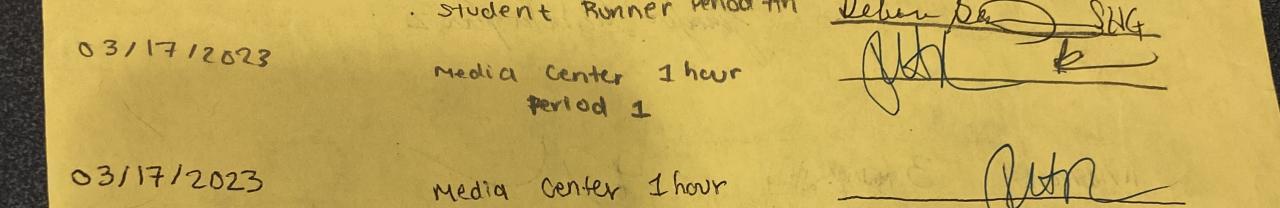 . Student Runner Period
03/17/2023
Media Center 1 hour
Period 1
03/17/2023
Media Center 1 hour